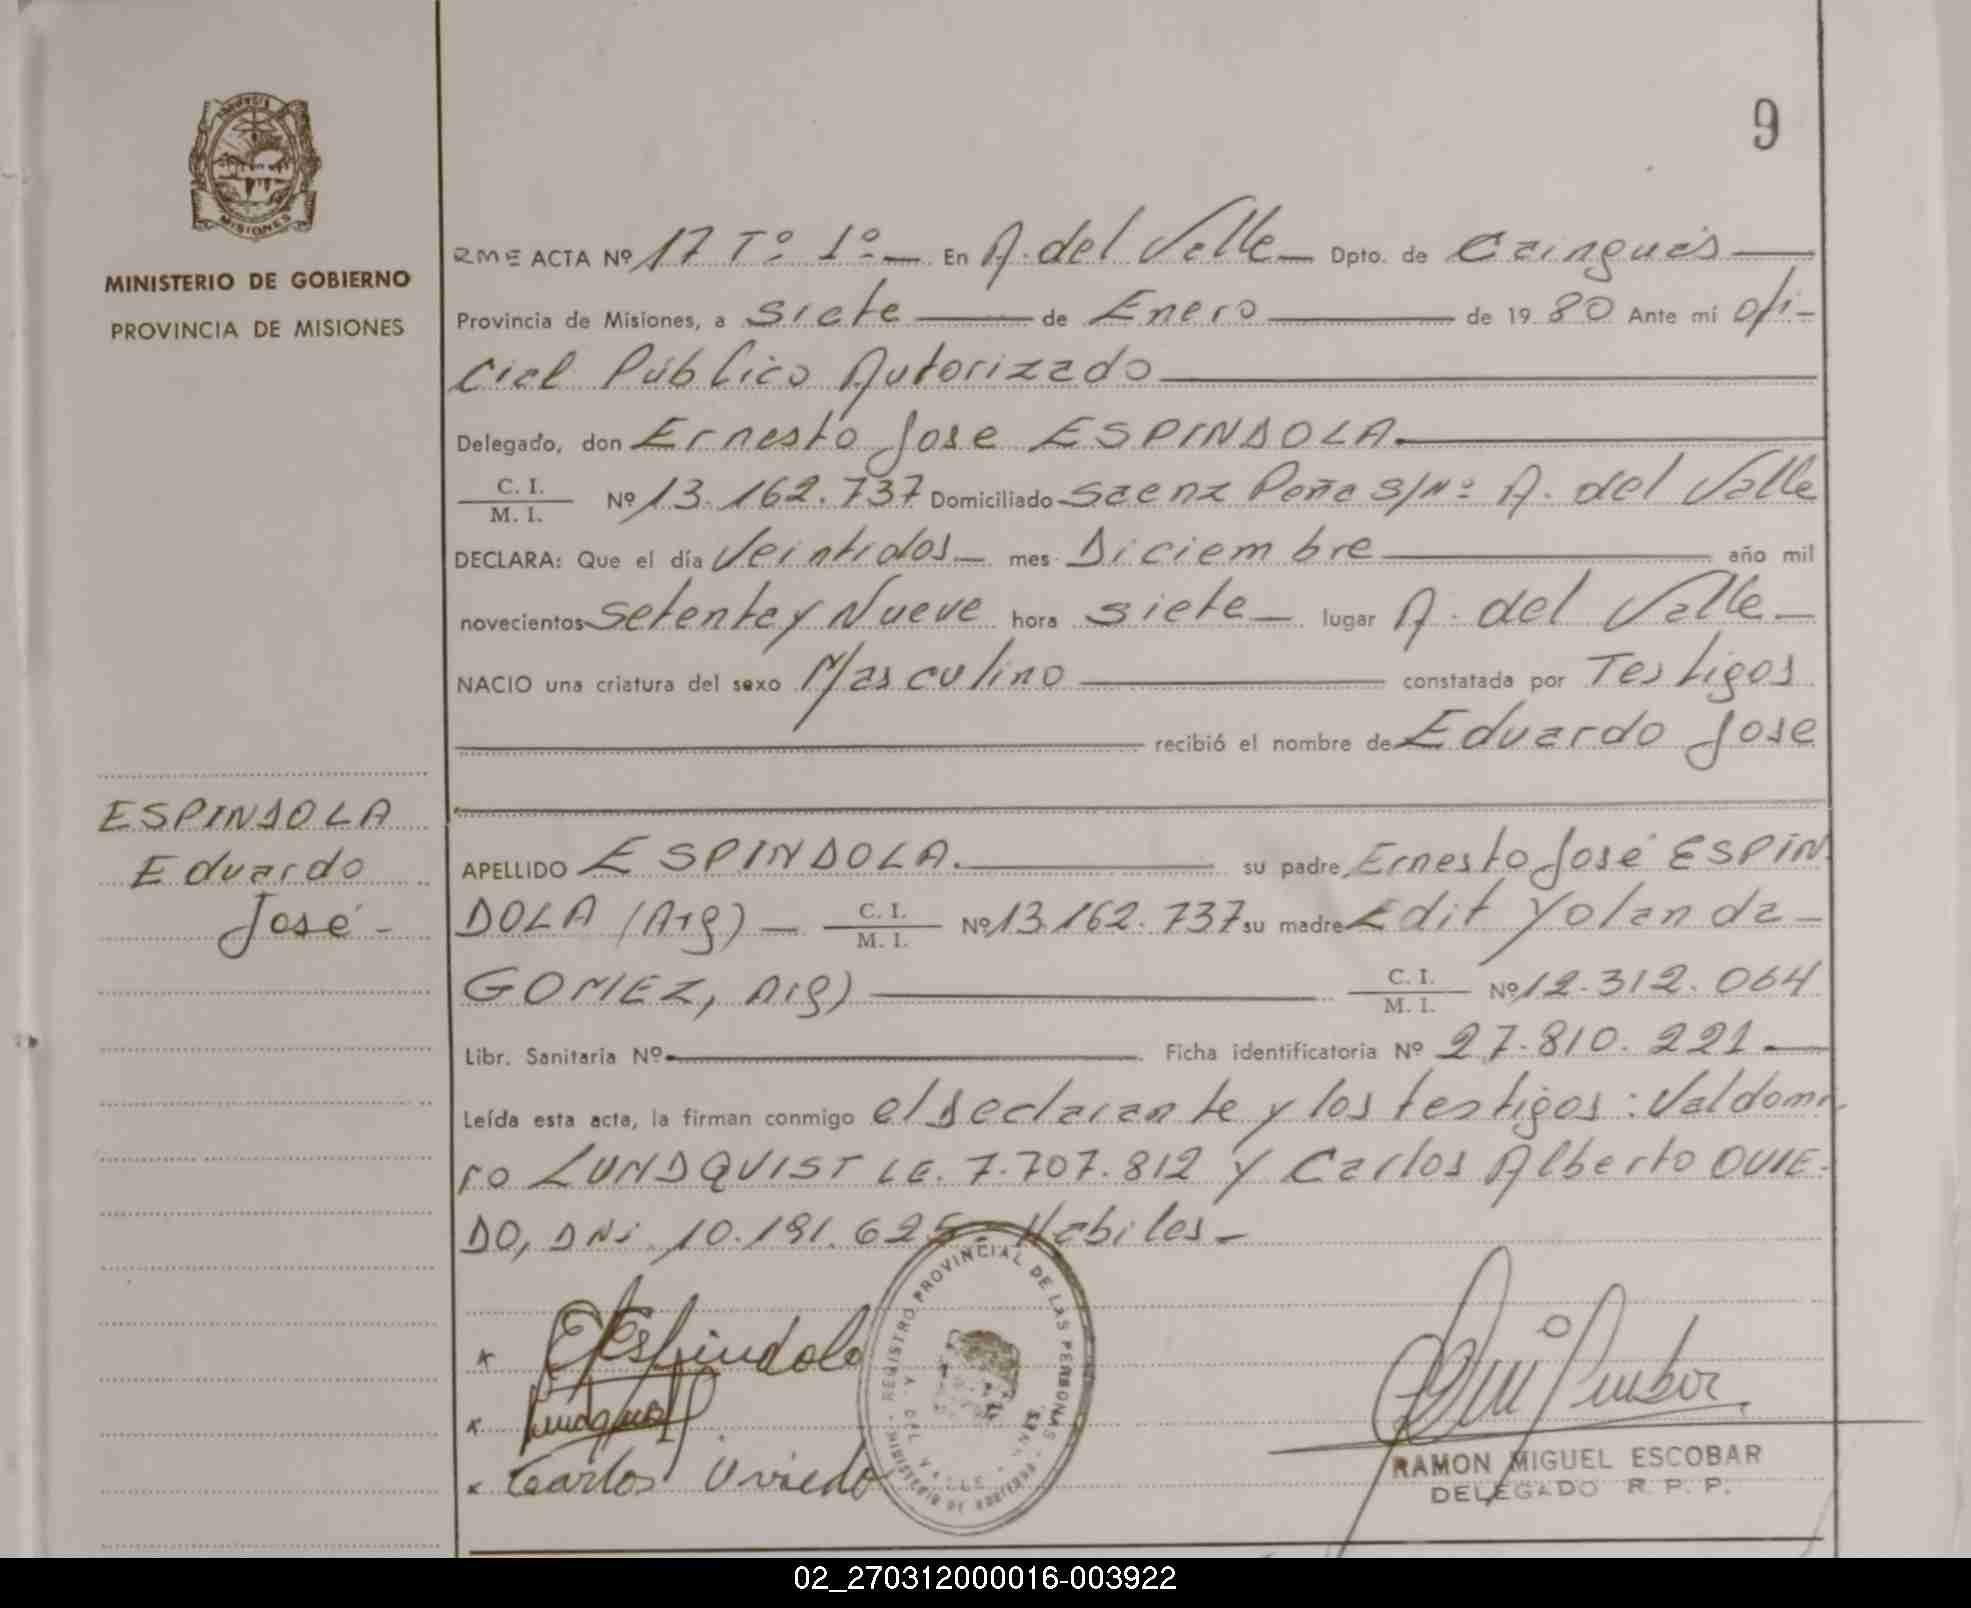 9
MISIONES
MINISTERIO DE GOBIERNO
PROVINCIA DE MISIONES
RME ACTA Nº 17 Tº 1º — En A. del Valle — Dpto. de Cainguás —
Provincia de Misiones, a siete — de Enero — de 19 80 Ante mí ofi-
cial Público Autorizado —
Delegado, don Ernesto Jose ESPINDOLA. —
C. I.
M. I. Nº 13.162.737 Domiciliado Saenz Peña s/nº A. del Valle
DECLARA: Que el día Veintidos — mes Diciembre — año mil
novecientos Setenta y Nueve hora siete — lugar A. del Valle —
NACIO una criatura del sexo Masculino — constatada por Testigos
— recibió el nombre de Eduardo Jose
ESPINDOLA
Eduardo
José -
APELLIDO ESPINDOLA. — su padre Ernesto José ESPIN
DOLA (Arg) — C. I.
M. I. Nº 13.162.737 su madre Edit Yolanda —
GOMEZ, Arg) — C. I.
M. I. Nº 12.312.064
Libr. Sanitaria Nº — Ficha identificatoria Nº 27.810.221 —
Leída esta acta, la firman conmigo el declarante y los testigos: Valdomi-
ro LUNDQUIST LE. 7.707.812 y Carlos Alberto OVIE-
DO, DNi. 10.191.625. Habiles —
x Espindola
x
x Carlos Oviedo
REGISTRO PROVINCIAL DE LAS PERSONAS
DEL VALLE
MINISTERIO DE GOBIERNO
RAMON MIGUEL ESCOBAR
DELEGADO R. P. P.
02_270312000016-003922